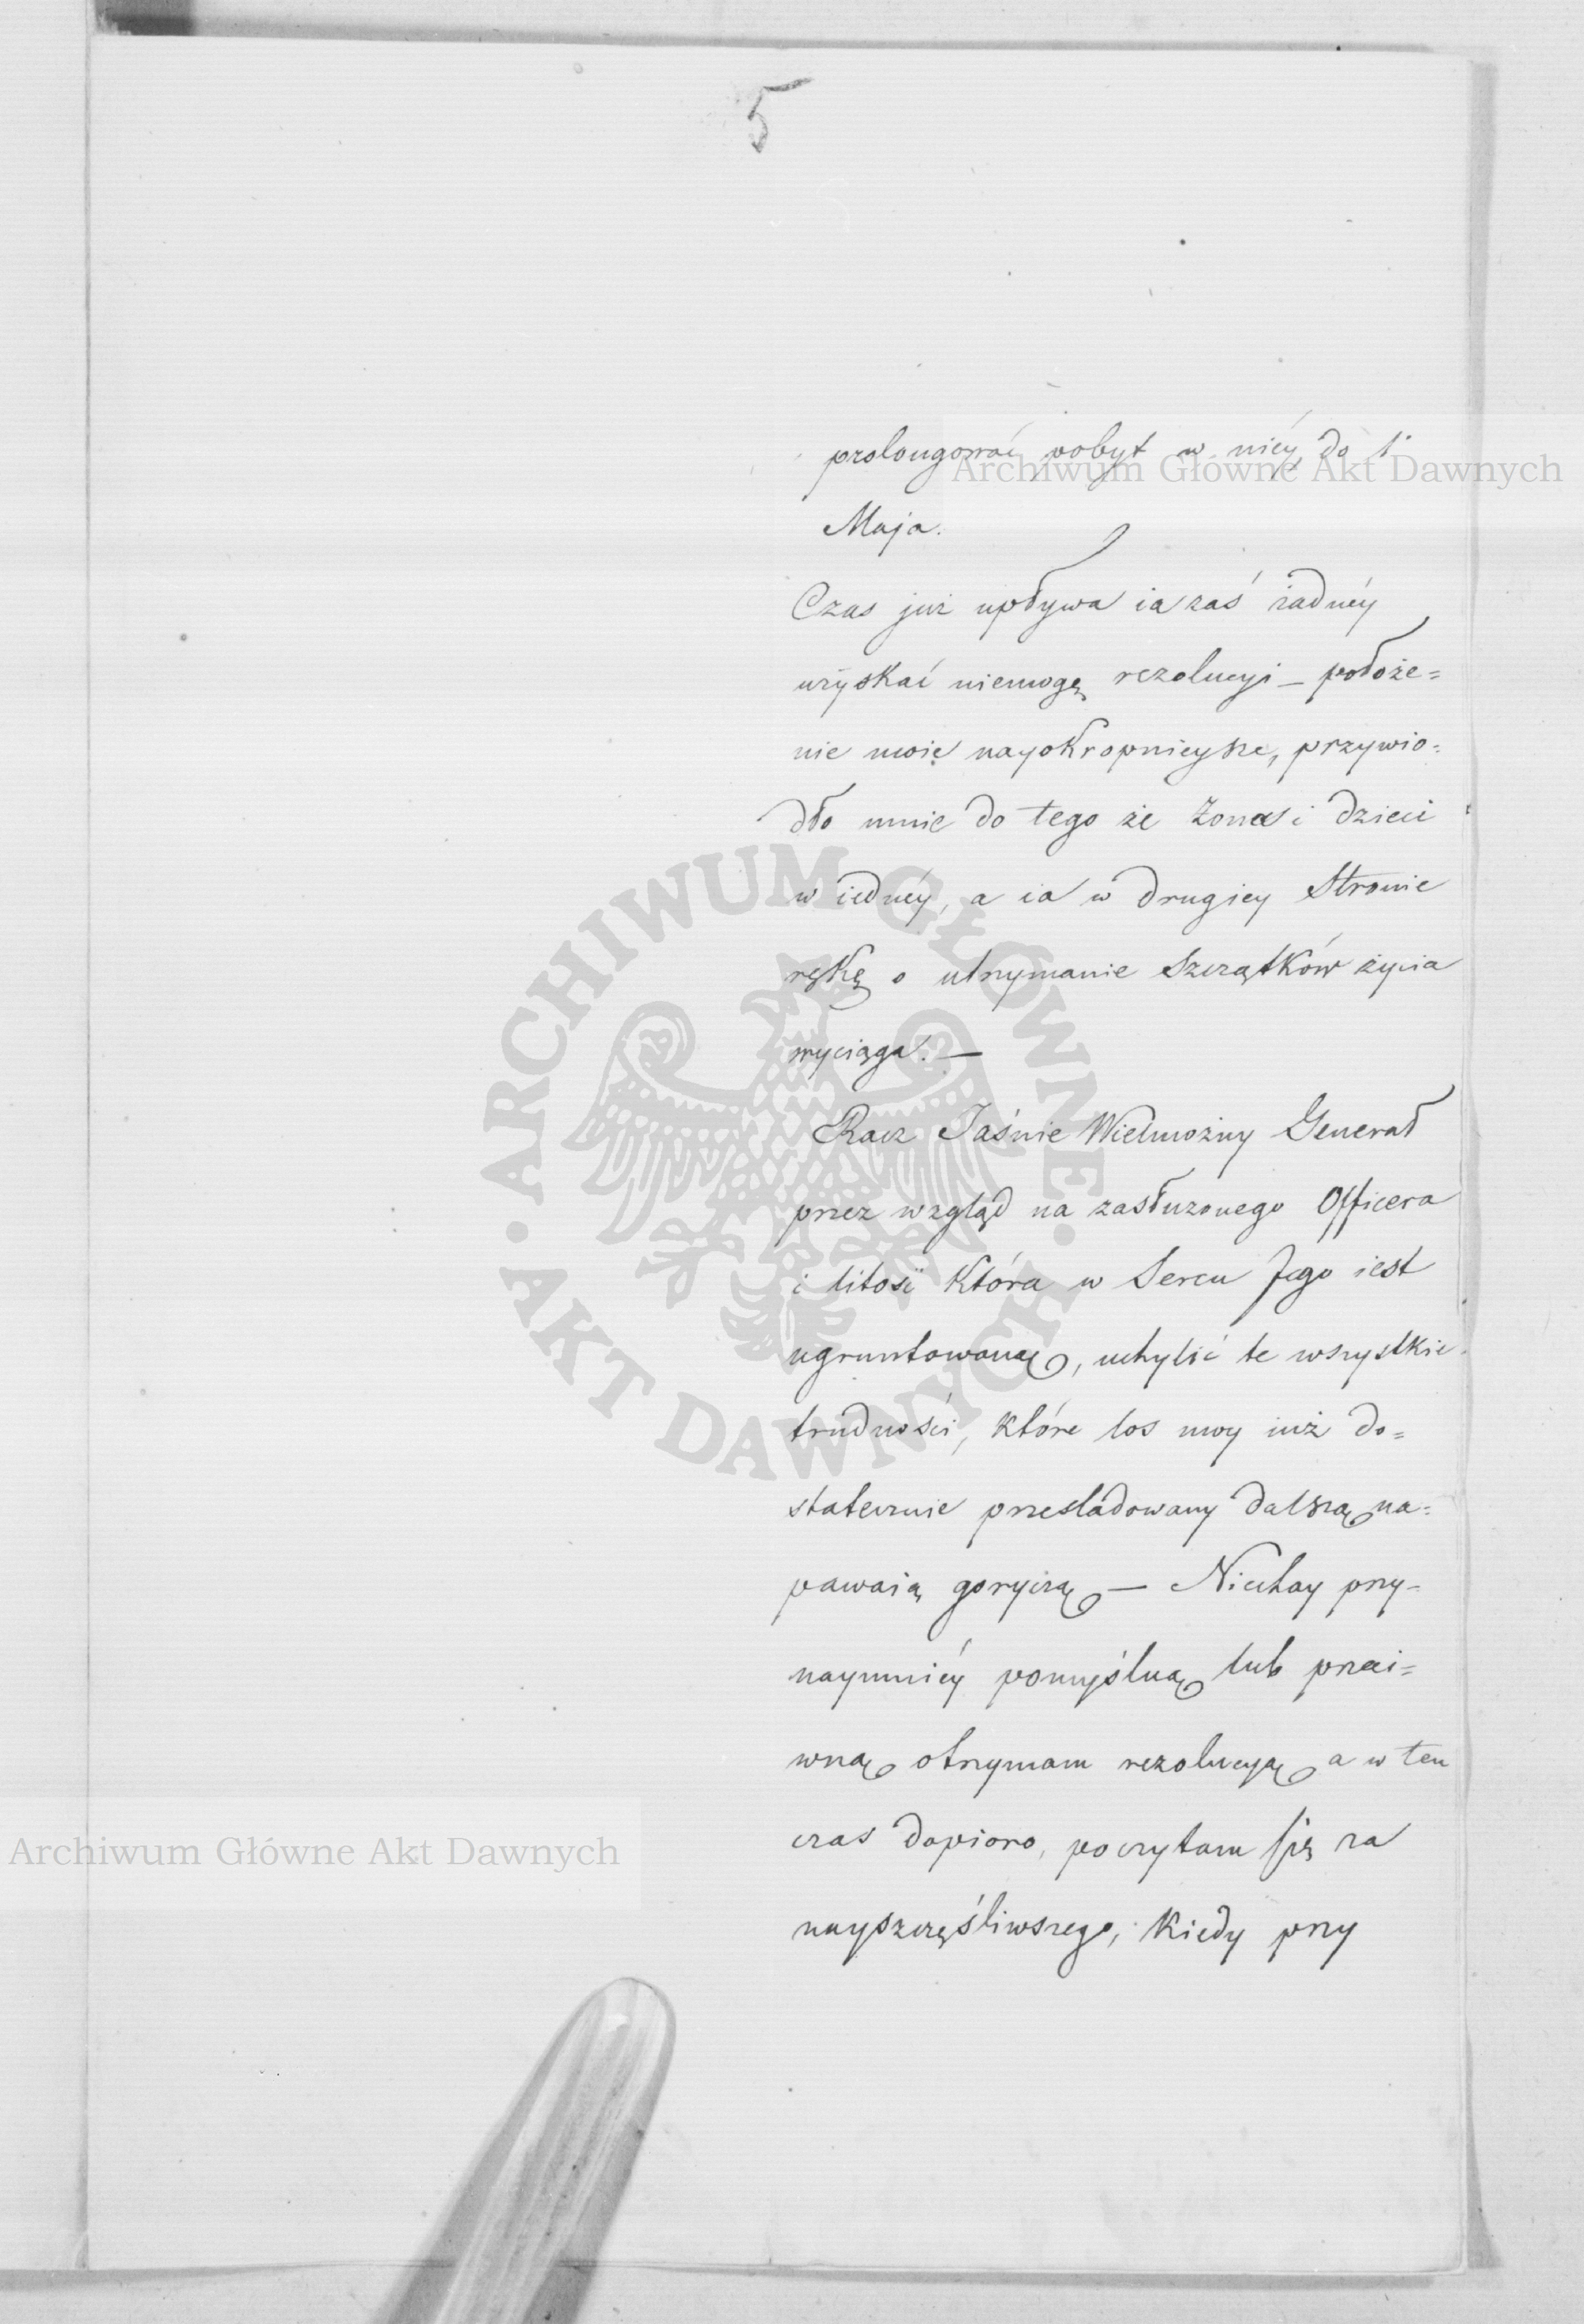 5
prolongować pobyt w niéy do 1º
Maja.
Czas już upływa ia zaś żadnéy
uzyskać niemogę rezolucyi — położe=
nie moie nayokropnieysze, przywio=
dło mnie do tego że żona i dzieci
w iednéy, a ia w drugiey Stronie
rękę o utrzymanie szczątków życia
wyciąga. —
Racz Jaśnie Wielmożny Generał
przez wzgląd na zasłużonego Officera
i litość która w Sercu Jego iest
ugruntowaną, uchylić te wszystkie
trudności, które los moy iuż do=
statecznie prześladowany dalszą na=
pawaią goryczą — Niechay przy=
naymniéy pomyślną lub przeci=
wną otrzymam rezolucyą a w ten
czas dopioro, poczytam się za
nayszczęśliwszego, kiedy przy
Archiwum Główne Akt Dawnych
Archiwum Główne Akt Dawnych
ARCHIWUM GŁÓWNE · AKT DAWNYCH ·